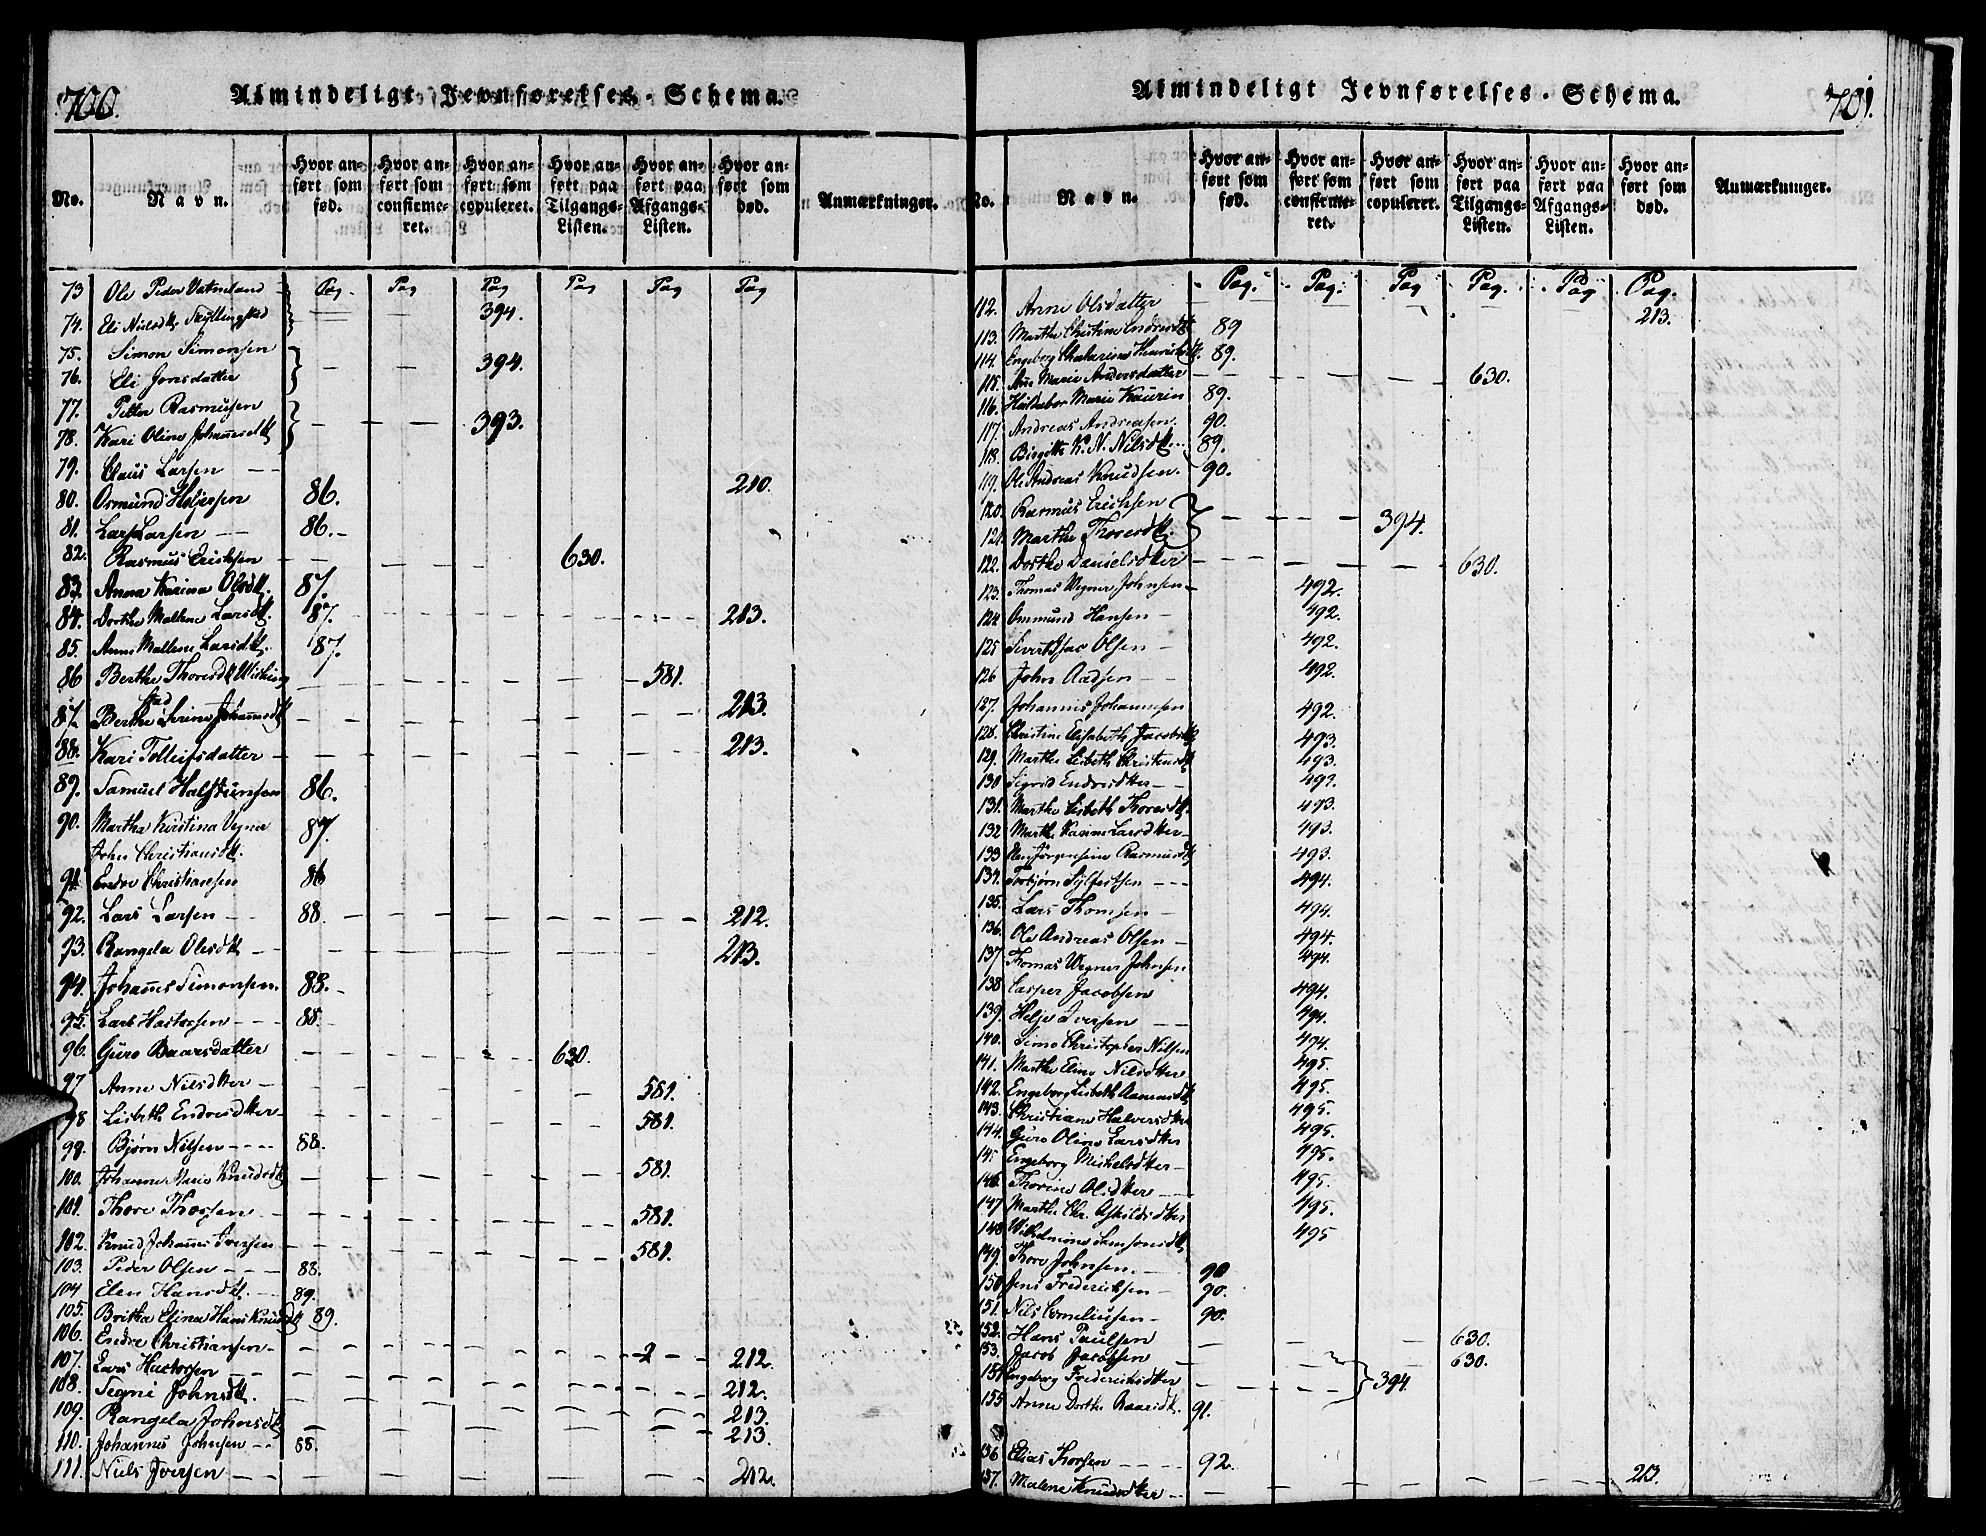 700.
Almindeligt Jevnførelses-Schema.
No. Navn. Hvor anført som fød. Hvor anført som confirmeret. Hvor anført som copuleret. Hvor anført paa Tilgangs-Listen. Hvor anført paa Afgangs-Listen. Hvor anført som død. Anmærkninger.
Pag Pag Pag Pag Pag Pag
73 Ole Peder Vatneland
74. Eli Nielsdtr. 394.
75. Simon Simonsen
76. Eli Jonsdatter 394.
77. Petter Rasmusen
78. Kari Oline Johannesdtr 393.
79. Claus Larsen 210.
80. Osmund Helgesen 86.
81. Lars Larsen 86.
82. Rasmus Erichsen 630.
83. Anna Karina Olsdtr. 87.
84. Dorthe Mallene Larsdtr. 87. 213.
85. Anne Mallene Larsdtr. 87.
86 Berthe Thoresdtr 581.
87. Berthe Serine Johannesdtr 213.
88. Kari Tolleifsdatter 213.
89. Samuel Halfdunsen 86.
90. Martha Kirstina Vegner 87.
John Christiansdtr.
91. Endre Christiansen 86
92. Lars Larsen 88. 212.
93. Rangela Olesdtr 213.
94. Johannes Simonsen. 88.
95. Lars Hactorsen 88.
96. Guro Baarsdatter 630.
97 Anne Nilsdtter 581.
98 Lisbeth Endresdtter 581.
99. Bjørn Nilsen 88.
100. Johanne Marie Knudsdtr 581.
101. Thore Thorsen 581.
102. Knud Johannes Iversen 581.
103. Peder Olsen 88.
104 Elen Hansdtr. 89.
105. Britha Elina Hans Knudsdtr 89.
106. Endre Christiansen 212.
107. Lars Hactorsen 212.
108. Segni Johnsdtr. 213.
109. Rangela Johnsdtr 213.
110. Johannes Johnsen 88.
111. Niels Iversen 212.
701.
Almindeligt Jevnførelses-Schema.
No. Navn. Hvor anført som fød. Hvor anført som confirmeret. Hvor anført som copuleret. Hvor anført paa Tilgangs-Listen. Hvor anført paa Afgangs-Listen. Hvor anført som død. Anmærkninger.
Pag. Pag. Pag Pag. Pag Pag.
112. Anne Olsdatter 213.
113. Marthe Christine Endresdtr 89
114. Engeborg Chatarina Henrichsdtr. 89.
115. Ane Marie Andersdatter 630.
116. Marie Kaurin 89.
117. Andreas Andreasen. 90.
118. Birgitte K. N. Nilsdtr. 89.
119. Ole Andreas Knudsen. 90.
120. Rasmus Erichsen
121. Marthe Thoresdtr. 394.
122. Dorthe Danielsdtter 630.
123. Thomas Wegner Johnsen 492.
124 Ommund Hansen 492.
125 Sivert Isac Olsen 492.
126 John Aadsen 492.
127. Johannis Johannesen 492.
128. Christine Elisabeth Jacobsdtr 493.
129. Marthe Lisbeth Christensdtr 493.
130 Sigrid Endresdtter 493.
131. Marthe Lisbeth Thoresdtr. 493.
132 Marthe Karine Larsdtter 493.
133 Jørgensine Rasmusdtr 493.
134. Torbjørn Sylfestsen 494.
135. Lars Thomsen 494.
136. Ole Andreas Olsen 494.
137 Thomas Wegner Johnsen 494.
138 Casper Jacobsen 494.
139 Helge Iversen 494.
140. Simo Christopher Nilsen 494.
141. Marthe Eline Nilsdtter 495.
142. Engeborg Lisbeth 495.
143. Christiane Halversdtter 495.
144. Guro Oline Larsdtter 495.
145 Engeborg Michelsdtter 495.
146. Thorine Olsdtter 495.
147 Marthe Chr. Askildsdtter 495.
148 Wilhelmine Samsonsdtr 495
149. Thore Johnsen. 90
150 Jens Frederichsen 90.
151. Nils Corneliusen 90.
152. Hans Paulsen 630.
153. Jacob Jacobsen 630.
154 Engeborg Frederichsdtter 394.
155 Anne Dorthe Baarsdtr. 91.
156 Elias Thorsen 92.
157. Malene Knudsdtter 213.